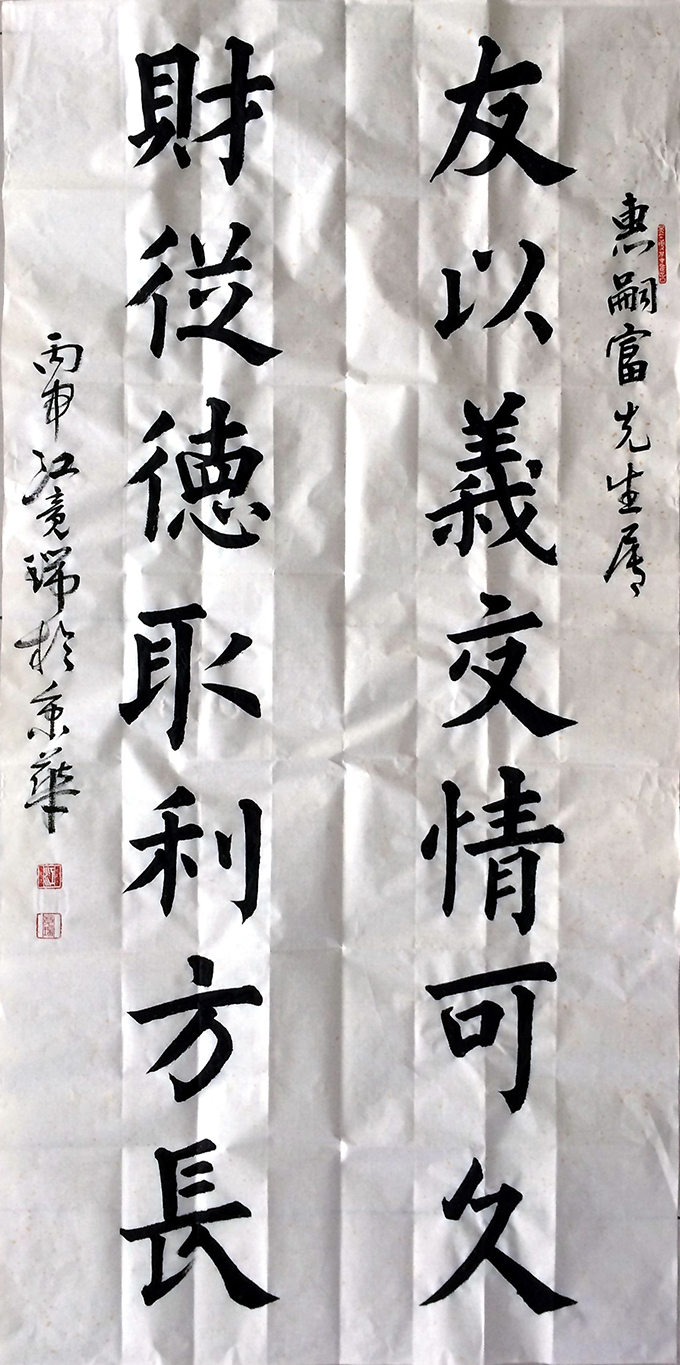 惠嗣富先生属
友以義交情可久
財従徳取利方長
丙申江竟瑞於京華